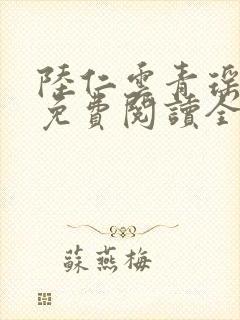 陸仁雲青瑶
免費閱讀全
蘇燕梅